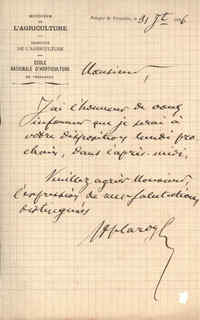 MINISTÈRE
DE
L'AGRICULTURE
DIRECTION
DE L'AGRICULTURE
ÉCOLE
NATIONALE D'HORTICULTURE
DE VERSAILLES
Potager de Versailles, le 31
Monsieur,
J'ai l'honneur de vous
informer que je serai à
votre disposition lundi pro-
chain, dans l'après-midi.
Veuillez agréer Monsieur,
l'expression de mes salutations
distinguées